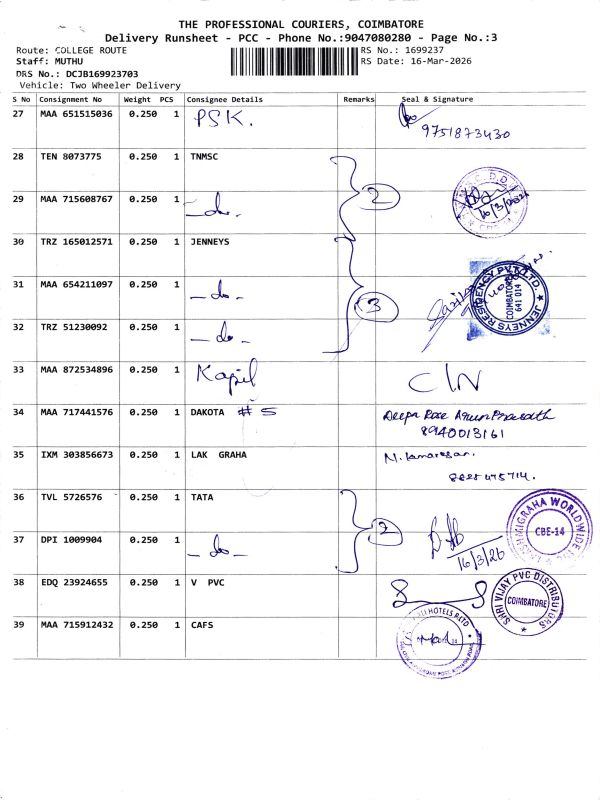 THE PROFESSIONAL COURIERS, COIMBATORE
Delivery Runsheet - PCC - Phone No.:9047080280 - Page No.:3
Route: COLLEGE ROUTE
RS No.: 1699237
Staff: MUTHU
RS Date: 16-Mar-2026
DRS No.: DCJB169923703
Vehicle: Two Wheeler Delivery
S No Consignment No Weight PCS Consignee Details Remarks Seal & Signature
27 MAA 651515036 0.250 1 PSK.
9751873430
28 TEN 8073775 0.250 1 TNMSC
29 MAA 715608767 0.250 1 - do - 2
16/3/2026
30 TRZ 165012571 0.250 1 JENNEYS
31 MAA 654211097 0.250 1 - do - 3
JENNEYS RESIDENCY PVT LTD.
COIMBATORE
641 014
32 TRZ 51230092 0.250 1 - do -
33 MAA 872534896 0.250 1 Kapil C/N
34 MAA 717441576 0.250 1 DAKOTA # 5 Deepa Rose
8940013161
35 IXM 303856673 0.250 1 LAK GRAHA N. Kumaresan.
36 TVL 5726576 0.250 1 TATA
LAKSHMIGRAHA WORLDWIDE
CBE-14
37 DPI 1009904 0.250 1 - do - 2
16/3/26
38 EDQ 23924655 0.250 1 V PVC
SHRI VIJAY PVC DISTRIBUTORS
COIMBATORE
39 MAA 715912432 0.250 1 CAFS
HOTELS P.LTD